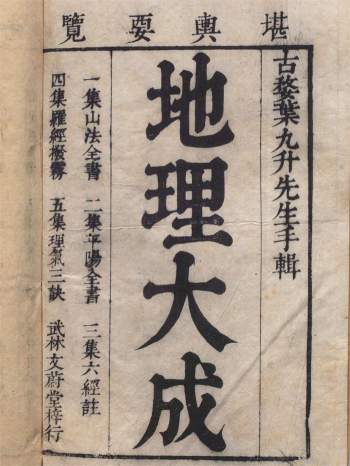 堪輿要覽
古婺葉九升先生手輯
地理大成
一集山法全書 二集平陽全書 三集六經註
四集羅經撥霧 五集理氣三訣 武林文蔚堂梓行